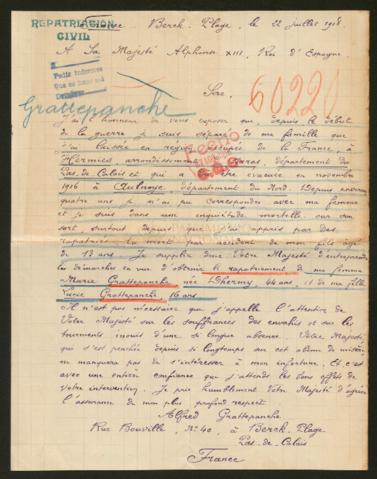 REPATRIATION
CIVIL
France Berck-Plage, le 22 juillet 1918.
A Sa Majesté Alphonse XIII, Roi d'Espagne
Sire,
60220
Grattepanche
J'ai l'honneur de vous exposer que, depuis le début
de la guerre je suis séparé de ma famille que
j'ai laissée en région occupée de la France, à
Hermies, arrondissement d'Arras, département du
Pas-de-Calais et qui a été évacuée en novembre
1916 à Aulnoye, département du Nord. Depuis environ
quatre ans je n'ai pu correspondre avec ma femme
et je suis dans une inquiétude mortelle sur son
sort surtout depuis que j'ai appris par des
rapatriés la mort par accident de mon fils âgé
de 13 ans. Je supplie donc Votre Majesté d'entreprendre
les démarches en vue d'obtenir le rapatriement de ma femme
Marie Grattepanche née Dhermy, 44 ans, et de ma fille
Lucie Grattepanche 16 ans.
Il n'est pas nécessaire que j'appelle l'attention de
Votre Majesté sur les souffrances des envahis et sur les
tourments inouïs d'une si longue absence. Votre Majesté,
qui s'est penchée depuis si longtemps sur cet abîme de misère,
ne manquera pas de s'intéresser à mon infortune. Et c'est
avec une entière confiance que j'attends les bons effets de
votre intervention. Je prie humblement Votre Majesté d'agréer
l'assurance de mon plus profond respect.
Alfred Grattepanche
Rue Bouville, No 40, à Berck-Plage
Pas-de-Calais
France